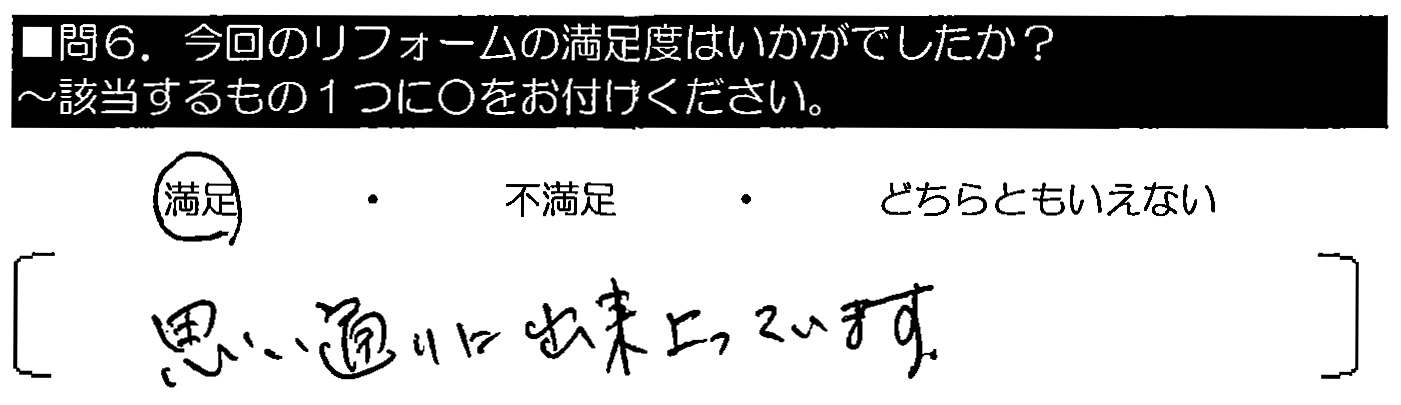 ■問6．今回のリフォームの満足度はいかがでしたか？
～該当するもの１つに〇をお付けください。
満足 ・ 不満足 ・ どちらともいえない
思い通りに出来上っています。